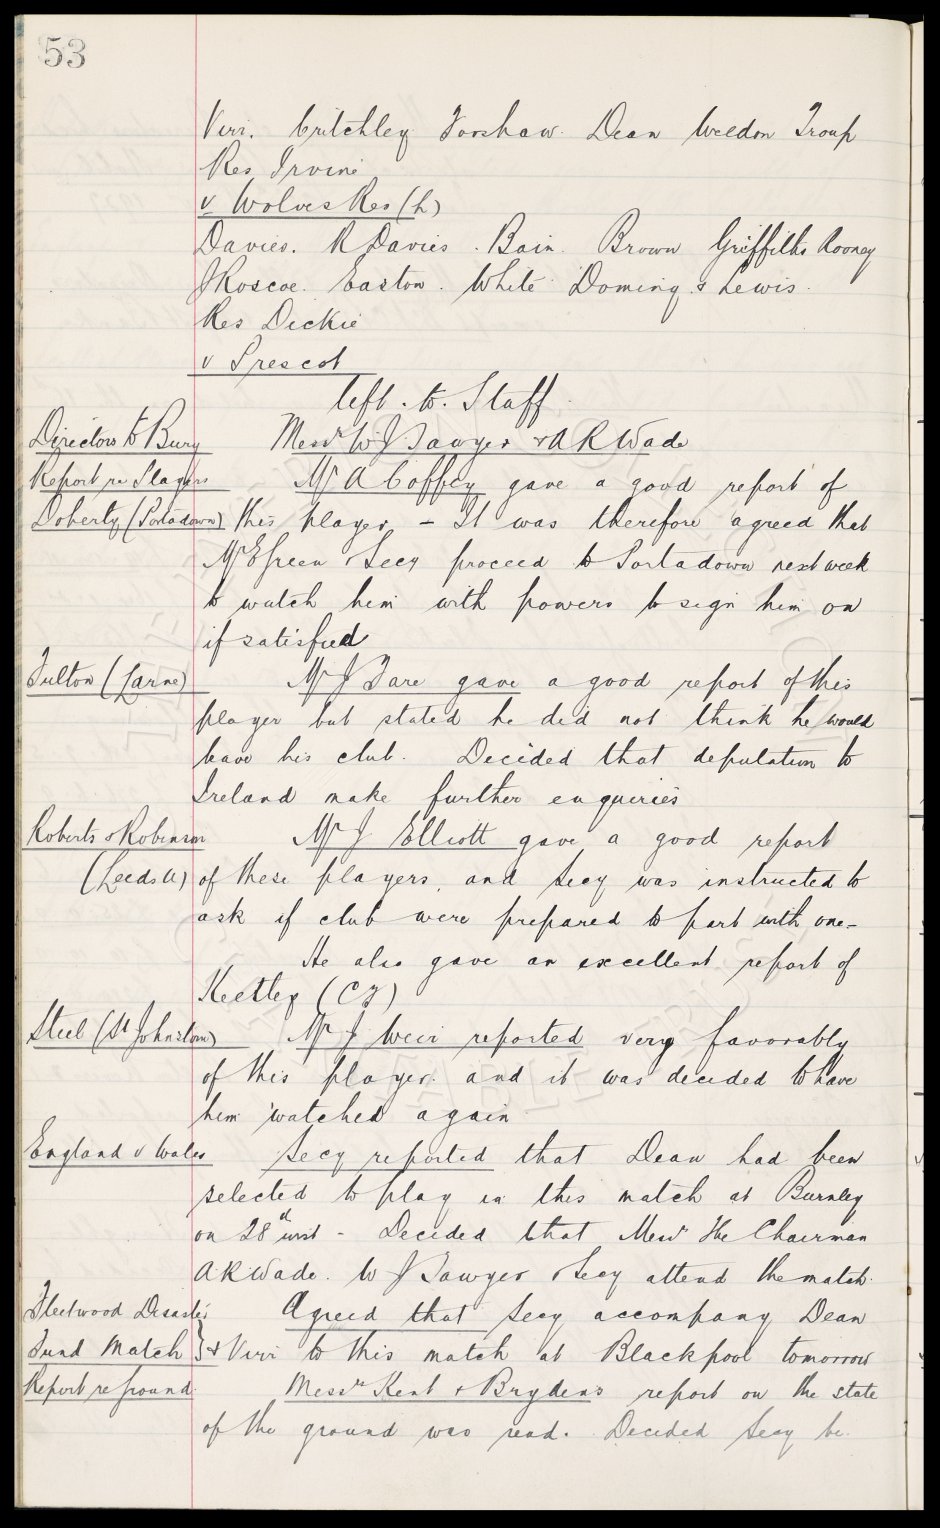 53
Virr. Critchley Forshaw. Dean Weldon Troup
Res Irvine
v Wolves Res (h)
Davies. R Davies. Bain. Brown Griffiths Rooney
J Roscoe. Easton. White Doming & Lewis.
Res Dickie
v Prescot
left. to. Staff.
Directors to Bury Messrs W J Sawyer & A R Wade
Report re Players Mr A Coffey gave a good report of
Doherty (Portadown) this player - It was therefore agreed that
Mr E Green & Secy proceed to Portadown next week
to watch him with powers to sign him on
if satisfied
Fulton (Larne) Mr J Fare gave a good report of this
player but stated he did not think he would
leave his club. Decided that deputation to
Ireland make further enqueries
Roberts & Robinson Mr J Elliott gave a good report
(Leeds U) of these players, and Secy was instructed to
ask if club were prepared to part with one-
He also gave an excellent report of
Keetley (CF)
Steel (St Johnstone) Mr J Weir reported very favorably
of this player. and it was decided to have
him watched again
England v Wales Secy reported that Dean had been
selected to play in this match at Burnley
on 28th inst - Decided that Messrs The Chairman
A R Wade. W J Sawyer & Secy attend the match.
Fleetwood Disaster Agreed that Secy accompany Dean
Fund Match } & Virr to this match at Blackpool tomorrow
Report re ground. Messrs Kent & Brydens report on the state
of the ground was read. Decided Secy be